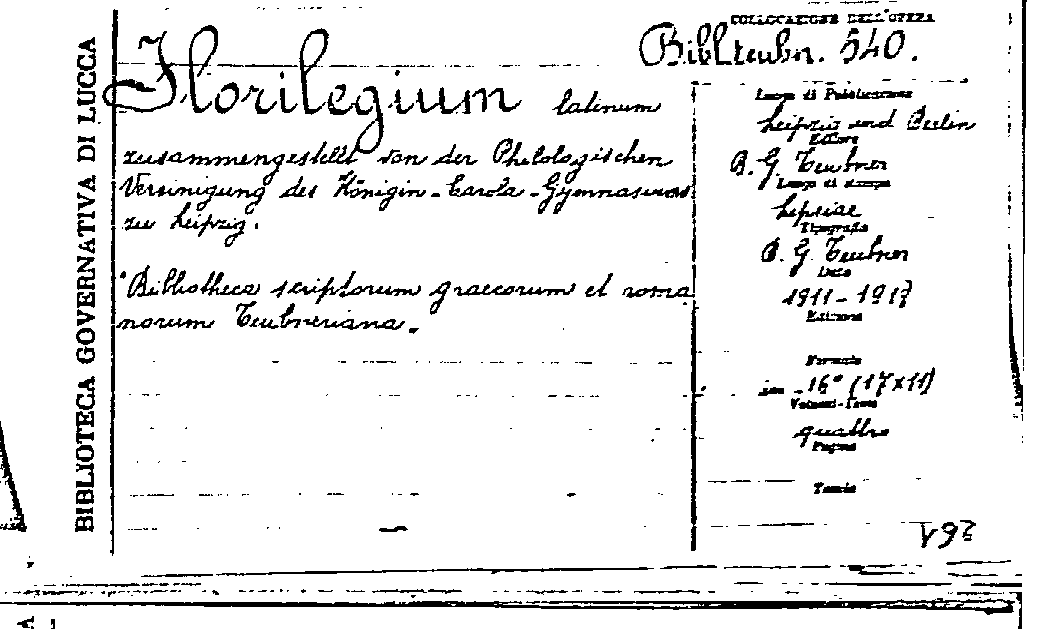 BIBLIOTECA GOVERNATIVA DI LUCCA
Florilegium latinum
zusammengestellt von der Philologischen
Vereinigung des Königin-Carola-Gymnasiums
zu Leipzig.
"Bibliotheca scriptorum graecorum et roma
norum Teubneriana.
COLLOCAZIONE DELL'OPERA
Bibl. teubn. 540.
Luogo di Pubblicazione
Leipzig und Berlin
Editore
B. G. Teubner
Luogo di stampa
Lipsiae
Tipografia
B. G. Teubner
Data
1911-1917
Edizione
Formato
in - 16° (17x11)
Volumi-Tomi
quattro
Pagine
Tavole